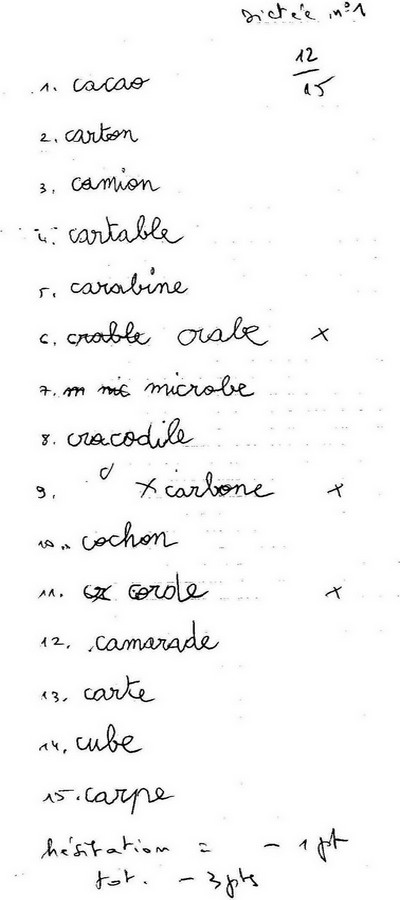 Dictée n°1
12
15
1. cacao
2. carton
3. camion
4. cartable
5. carabine
6. crable crabe x
7. m mic microbe
8. crocodile
9. x carbone x
10. cochon
11. corde x
12. camarade
13. carte
14. cube
15. carpe
hésitation = - 1 pt
tot. - 3 pts